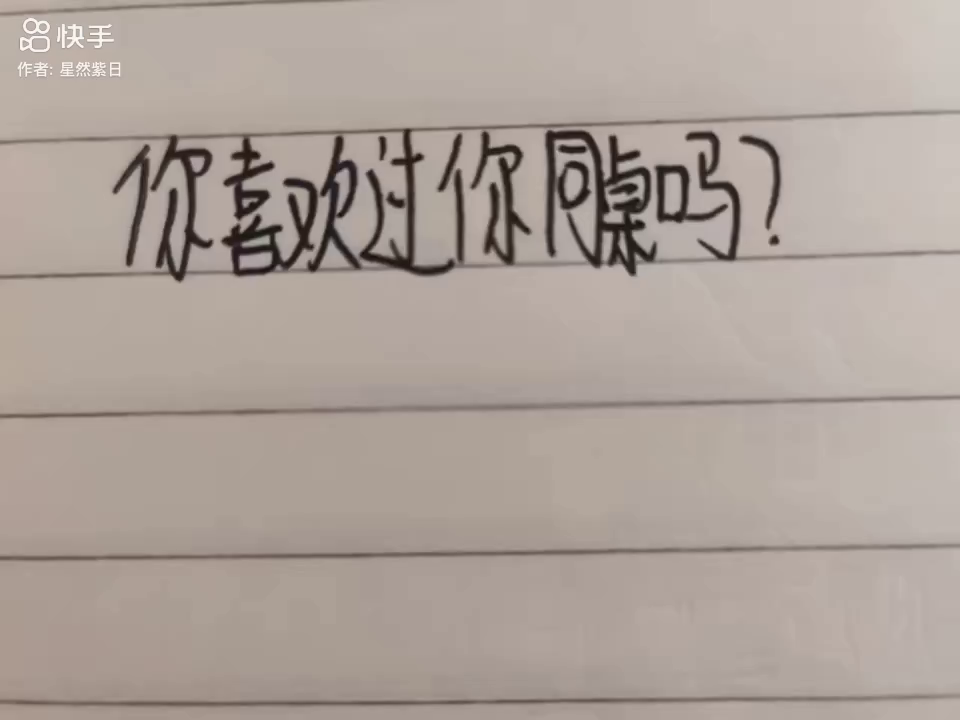 快手
作者: 星然紫日
你喜欢过你同桌吗?